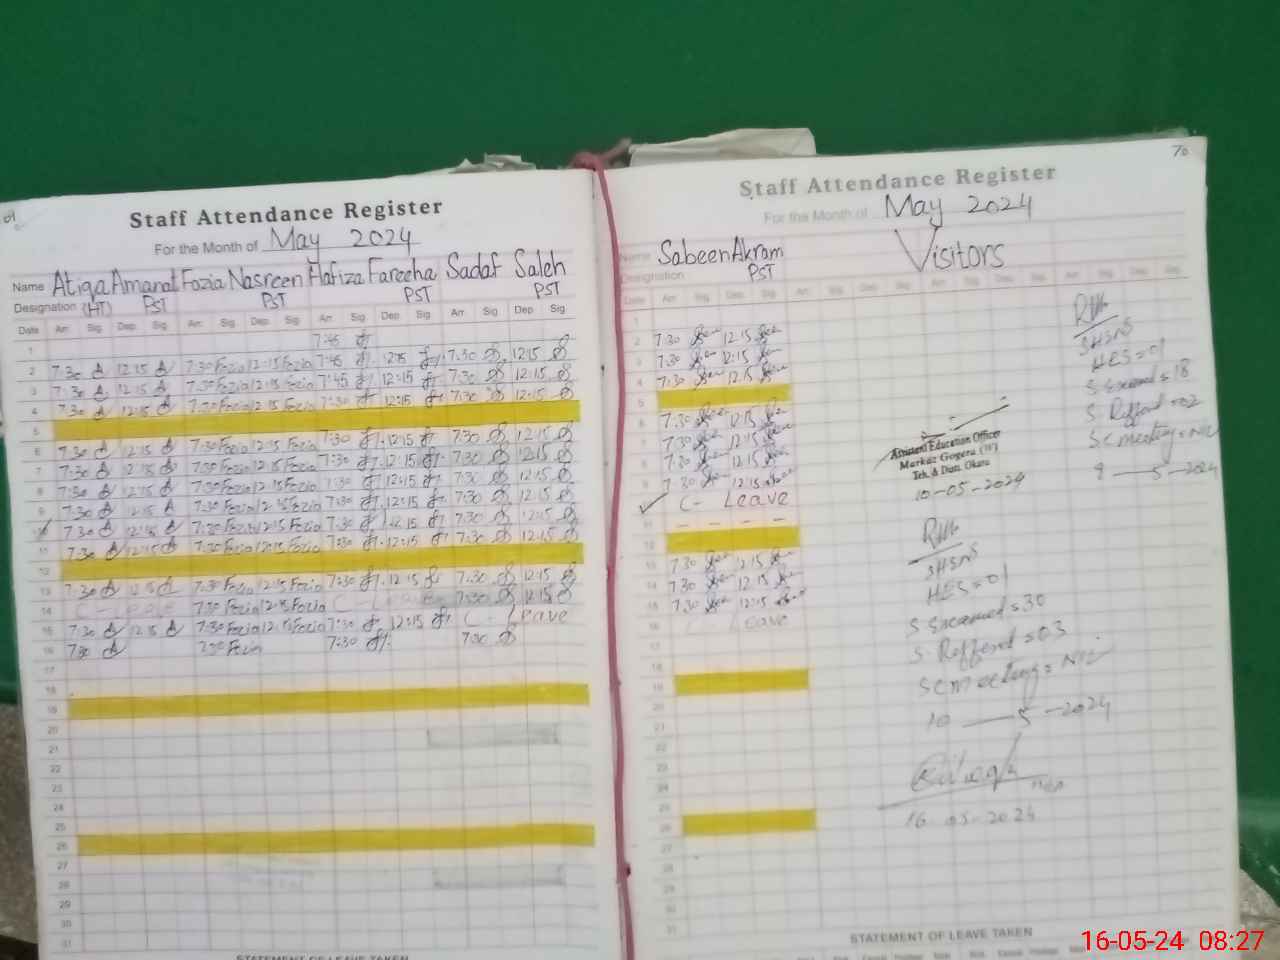 Staff Attendance Register
For the Month of May 2024
Name Atiqa Amanat Fozia Nasreen Hafiza Fareeha Sadaf Saleh
Designation (HT) PST PST PST PST
Date Arr. Sig. Dep. Sig. Arr. Sig. Dep. Sig. Arr. Sig. Dep. Sig. Arr. Sig. Dep. Sig.
1 7:45
2 7:30 12:15 7:30 Fozia 12:15 Fozia 7:45 12:15 7:30 12:15
3 7:30 12:15 7:30 Fozia 12:15 Fozia 7:45 12:15 7:30 12:15
4 7:30 12:15 7:30 Fozia 12:15 Fozia 7:30 12:15 7:30 12:15
5
6 7:30 12:15 7:30 Fozia 12:15 Fozia 7:30 12:15 7:30 12:15
7 7:30 12:15 7:30 Fozia 12:15 Fozia 7:30 12:15 7:30 12:15
8 7:30 12:15 7:30 Fozia 12:15 Fozia 7:30 12:15 7:30 12:15
9 7:30 12:15 7:30 Fozia 12:15 Fozia 7:30 12:15 7:30 12:15
10 7:30 12:15 7:30 Fozia 12:15 Fozia 7:30 12:15 7:30 12:15
11 7:30 12:15 7:30 Fozia 12:15 Fozia 7:30 12:15 7:30 12:15
12
13 7:30 12:15 7:30 Fozia 12:15 Fozia 7:30 12:15 7:30 12:15
14 C - Leave 7:30 Fozia 12:15 Fozia C - Leave 7:30 12:15
15 7:30 12:15 7:30 Fozia 12:15 Fozia 7:30 12:15 C - Leave
16 7:30 7:30 Fozia 7:30 7:30
17
18
19
20
21
22
23
24
25
26
27
28
29
30
31
STATEMENT OF LEAVE TAKEN
70
Staff Attendance Register
For the Month of May 2024
Name Sabeen Akram Visitors
Designation PST
Date Arr. Sig. Dep. Sig.
1
2 7:30 12:15
3 7:30 12:15
4 7:30 12:15
5
6 7:30 12:15
7 7:30 12:15
8 7:30 12:15
9 7:30 12:15
C - Leave
11 - - - -
12
13 7:30 12:15
14 7:30 12:15
15 7:30 12:15
16 Leave
SHSNS
HES = 01
S Screened = 18
S Refferd = 02
SC meeting = NIL
8 — 5 - 2024
Assistant Education Officer
Markaz Gogera (W)
Teh. & Distt. Okara
10-05-2024
SHSNS
HES = 01
S Screened = 30
S Refferd = 03
SC meeting = NIL
10 — 5 - 2024
16-05-2024
STATEMENT OF LEAVE TAKEN
16-05-24 08:27